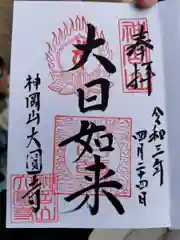 奉拝
令和三年
四月二十四日
大日如来
神岡山大圓寺